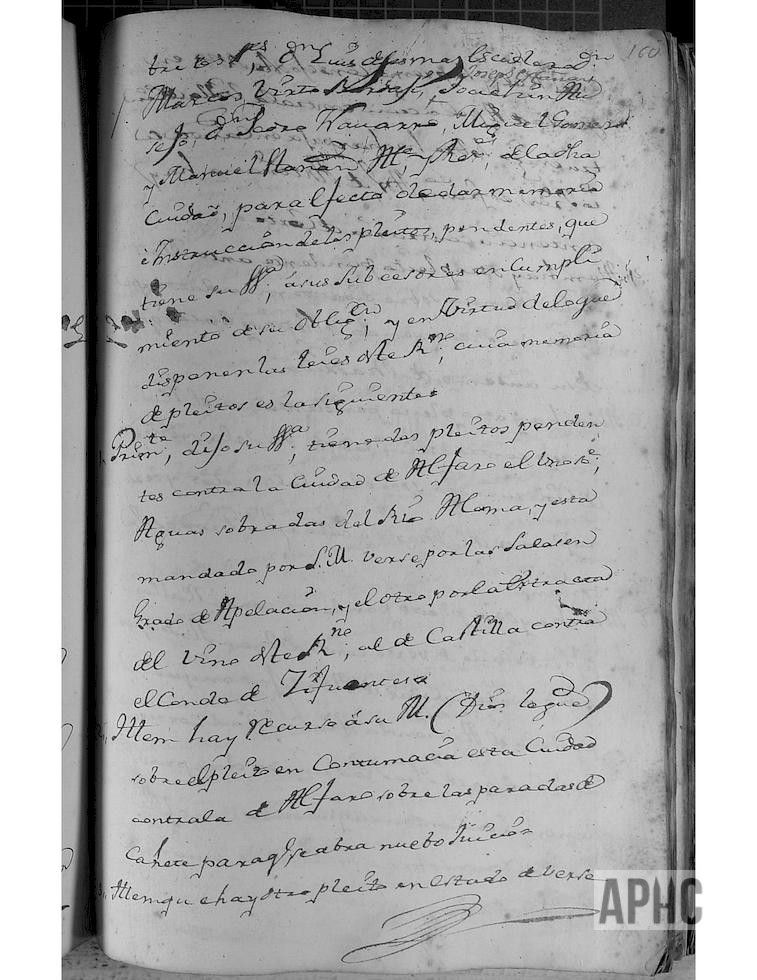 160
Marcos Virto
sejo, Dn Pedro Navarro, Miguel Gomera
y Manuel Mre y Rexr, de la dha
Ciudad, para efecto de dar memoria
è Instruccion de los pleitos, pendentes, que
tiene su Sa; á sus Subcesores en Cumpli
miento de su obligcio; y en Virtud de lo que
disponen las leies deste Rno; cuia memoria
de pleitos es la siguiente=
Primte, dijo su Sa; tiene dos pleitos penden
tes contra la Ciudad de Alfaro el Uno Se;
Aguas sobradas del Rio Alama, y esta
mandado por S. M. verse por las Salas en
Grado de Apelacion, y el otro por la Extraccia
del Vino deste Rno; al de Castilla contra
el Conde de Zifuentes
2, Ittem hay Recurso á su M. (Dios le gue)
sobre el pleito en Contumacia esta Ciudad
contra la de Alfaro sobre las paradas de
Cañete para q se abra nuebo Juicio=
3, Ittem que hay otro pleito en estado de Verse
APHC